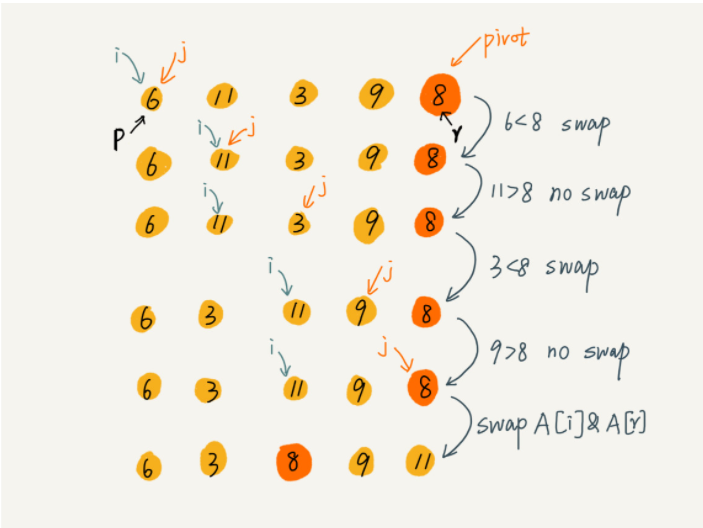 i j pivot
6 11 3 9 8
p i j r 6<8 swap
6 11 3 9 8
i j 11>8 no swap
6 11 3 9 8
3<8 swap
i j
6 3 11 9 8
i j 9>8 no swap
6 3 11 9 8
swap A[i]&A[r]
6 3 8 9 11